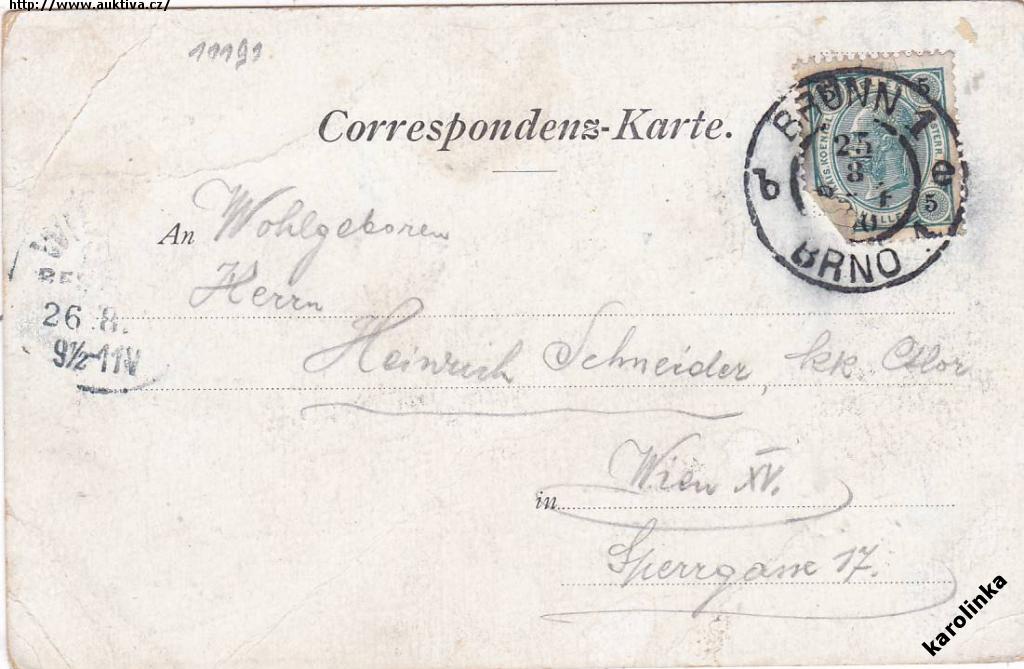 http://www.auktiva.cz/
11191
Correspondenz-Karte.
BRÜNN 1
BRNO
25
8
b
e
5
5
5
An Wohlgeboren
Herrn
Heinrich Schneider, kk
26.8.
9½-11V
in Wien XV.
Sperrgasse 17.
karolinka